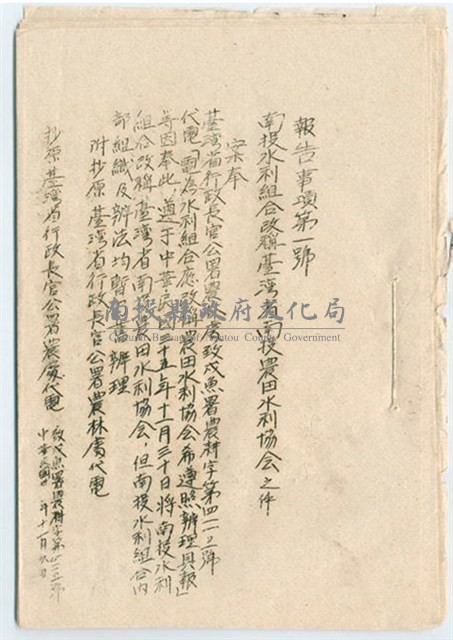 報告事項第一號
南投水利組合改稱臺灣省南投農田水利協會之件
案奉
臺灣省行政長官公署農林處致戌魚署農耕字第四一二三號
代電「電為水利組合應改稱農田水利協會希遵照辨理具報」
等因奉此,遵于中華民國三十五年十一月三十日將南投水利
組合改稱臺灣省南投農田水利協會,但南投水利組合內
部組織及辨法均暫舊辨理
附抄原臺灣省行政長官公署農林處代電
抄原臺灣省行政長官公署農處代電
致戌魚署農耕字第四一二三號
中華民國 年十一月九日
南投縣政府文化局
Cultural Bureau of Nantou County Government